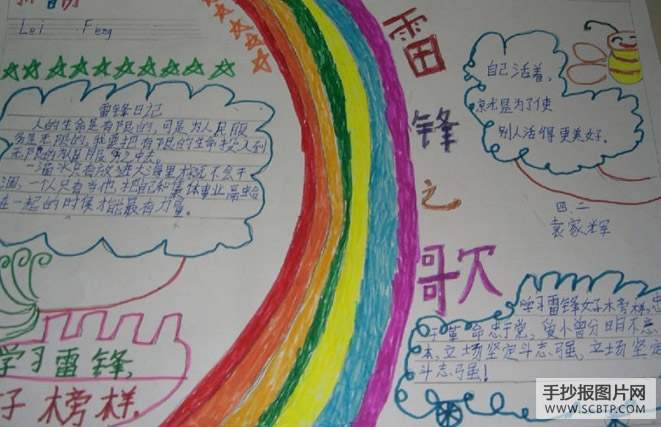 Lei Feng
雷锋日记
人的生命是有限的,可是为人民服
务是无限的,我要把有限的生命投入到
无限的为人民服务之中去
一滴水只有放进大海里才能不会干
涸,一个人只有当他把自己和集体事业融合
在一起的时候才能最有力量。
学习雷锋,
好榜样。
雷锋之歌
自己活着,
就是为了使
别人活得更美好。
四、二
袁家辉
学习雷锋好榜样,忠
于革命忠于党,爱憎分明不忘
本,立场坚定斗志强,立场坚定
斗志强!
手抄报图片网
WWW.SCBTP.COM